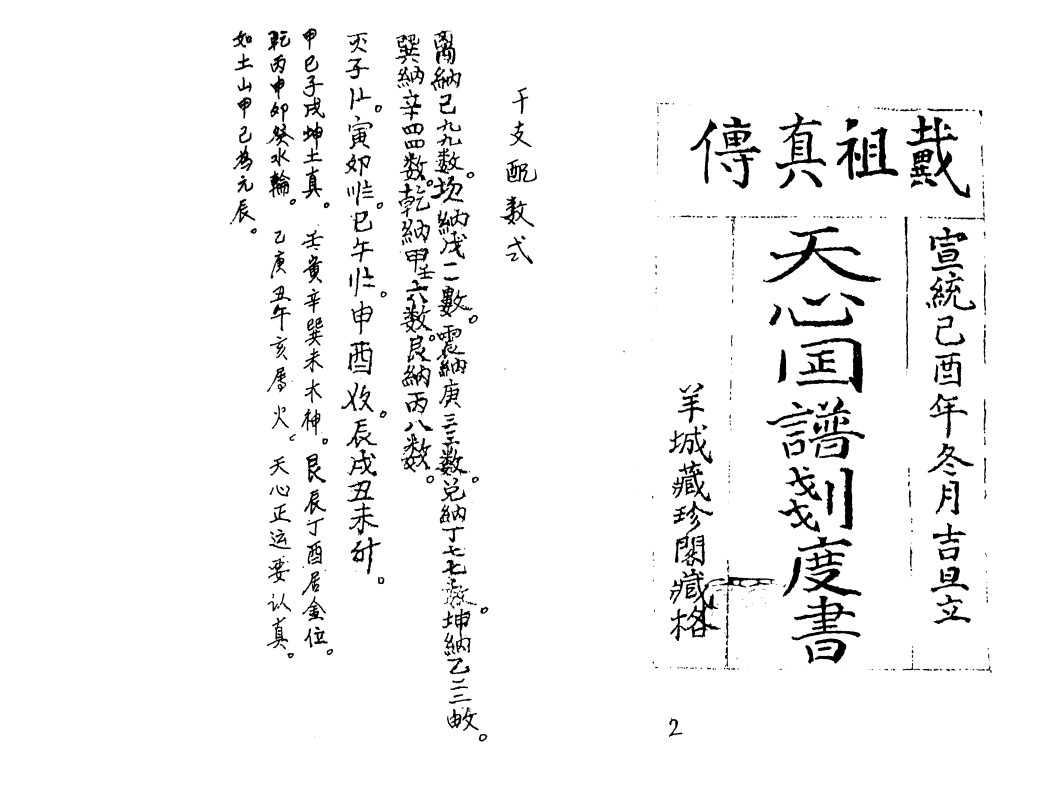 戴祖真傳
宣統己酉年冬月吉旦立
天心囸譜剗度書
羊城藏珍閣藏格
2
干支配数式
離納己九九数。坎納戊一數。震納庚三三数。兑納丁七七数。坤納乙二三
巽納辛四四数。乾納甲壬六六数。艮納丙八数。
亥子 寅卯 巳午 申酉 辰戌丑未
甲巳子戌坤土真。壬寅辛巽未木神。艮辰丁酉居金位。
乾丙申卯癸水輪。乙庚丑午亥屬火。天心正运要认真。
如土山甲己為元辰。